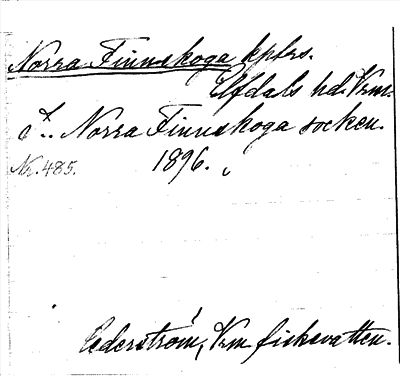 Norra Finnskoga kpfrs.
Elfdals hd. Vrm.
i Norra Finnskoga socken.
Nr. 485. 1896.
Cederström, Vrm fiskevatten.